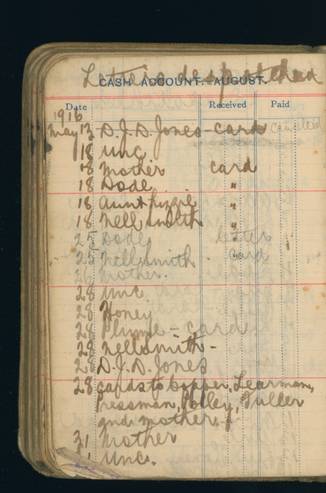 Letters despatched
CASH ACCOUNT. AUGUST.
Date Received Paid
1916
May 13 D.J.D. Jones - card
18 Unc.
18 Mother card
18 Dode "
18 Aunt Lizzie "
18 Nell Smith "
25 Dode letter
25 Nell Smith card
26 Mother.
28 Unc
28 Honey
28 Plume - card
28 Nell Smith -
28 D.J.D. Jones
28 cards to Learman,
Pressman, Polley, Fuller
and Mother.
31 Mother
Unc.